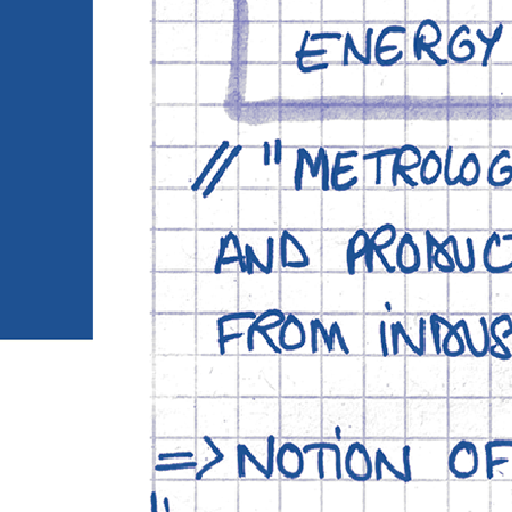 ENERGY
// "METROLOG
AND PRODUCT
FROM iNDUS
=> NOTiON OF
"